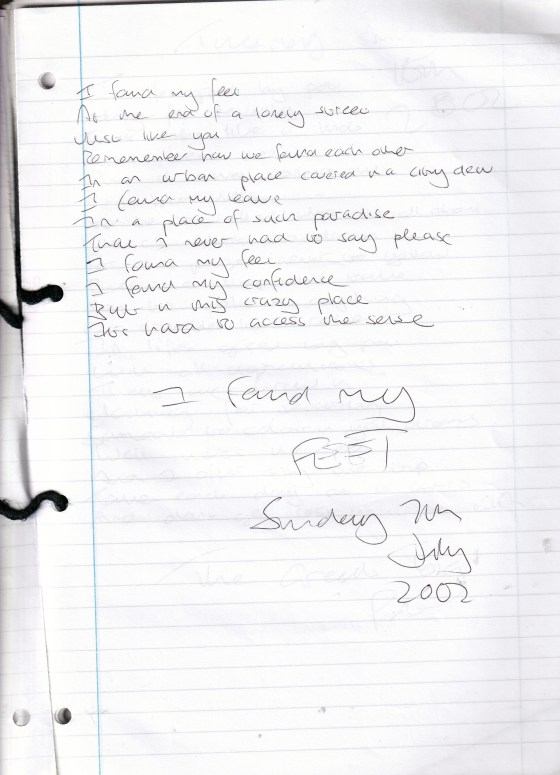 I found my feet
At the end of a lonely street
Just like you
Rememember how we found each other
In an urban place covered in a city dew
I found my leave
In a place of such paradise
That I never had to say please
I found my feet
I found my confidence
But in this crazy place
It's hard to access the sense
I found my
FEET
Sunday 7th
July
2002